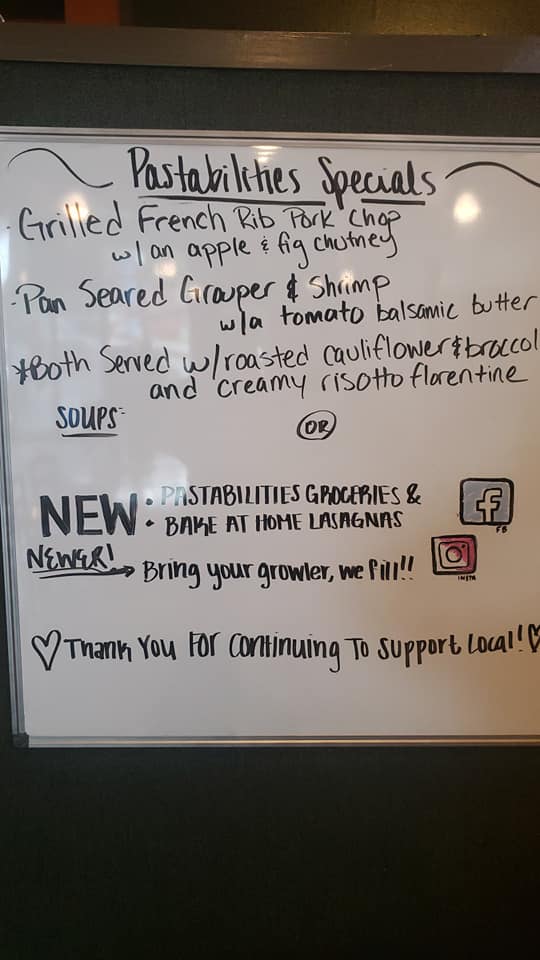 Pastabilities Specials
· Grilled French Rib Pork Chop
w/ an apple & fig chutney
· Pan Seared Grouper & Shrimp
w/a tomato balsamic butter
*Both Served w/roasted cauliflower & broccol
and creamy risotto florentine
SOUPS- OR
NEW • PASTABILITIES GROCERIES &
• BAKE AT HOME LASAGNAS
f
FB
NEWER! → Bring your growler, we fill!!
INSTA
♡Thank You For Continuing To Support Local!♡